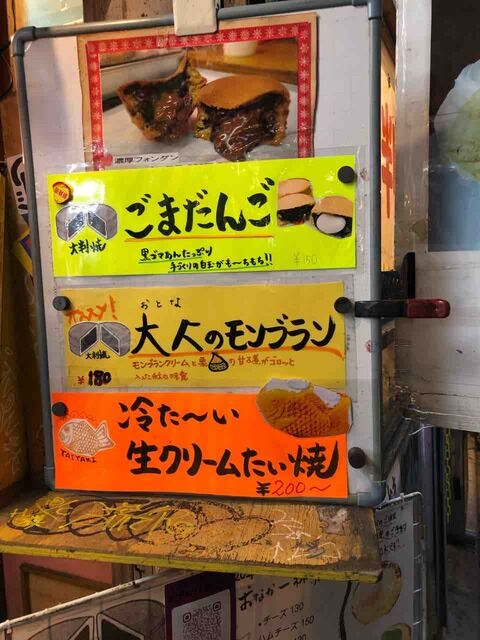 濃厚フォンダン
大判焼
ごまだんご
黒ゴマあんたっぷり
手づくりの白玉がも〜ちもち!!
¥150
オススメ!
大判焼
おとな
大人のモンブラン
モンブランクリームと栗の甘露煮がゴロッと
入った秋の味覚
¥180
冷た〜い
TAIYAKI
生クリームたい焼
¥200〜
・チーズ 130
ハムチーズ 150